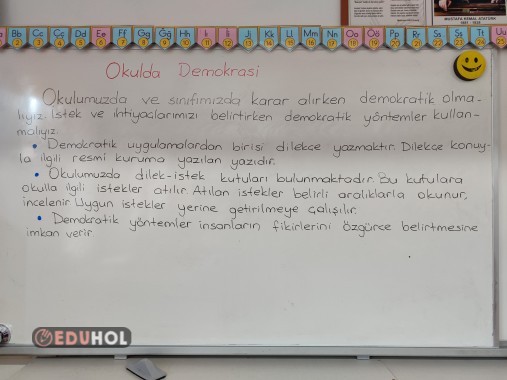 Bb Cc Çç Dd Ee Ff Gg Ğğ Hh Iı İi Jj Kk Ll Mm Nn Oo Öö Pp Rr Ss Şş Tt Uu
MUSTAFA KEMAL ATATÜRK
Okulda Demokrasi
Okulumuzda ve sınıfımızda karar alırken demokratik olma-
lıyız. İstek ve ihtiyaçlarımızı belirtirken demokratik yöntemler kullan-
malıyız.
• Demokratik uygulamalardan birisi dilekçe yazmaktır. Dilekçe konuy-
la ilgili resmi kuruma yazılan yazıdır.
• Okulumuzda dilek-istek kutuları bulunmaktadır. Bu kutulara
okulla ilgili istekler atılır. Atılan istekler belirli aralıklarla okunur,
incelenir. Uygun istekler yerine getirilmeye çalışılır.
• Demokratik yöntemler insanların fikirlerini özgürce belirtmesine
imkan verir.
EDUHOL